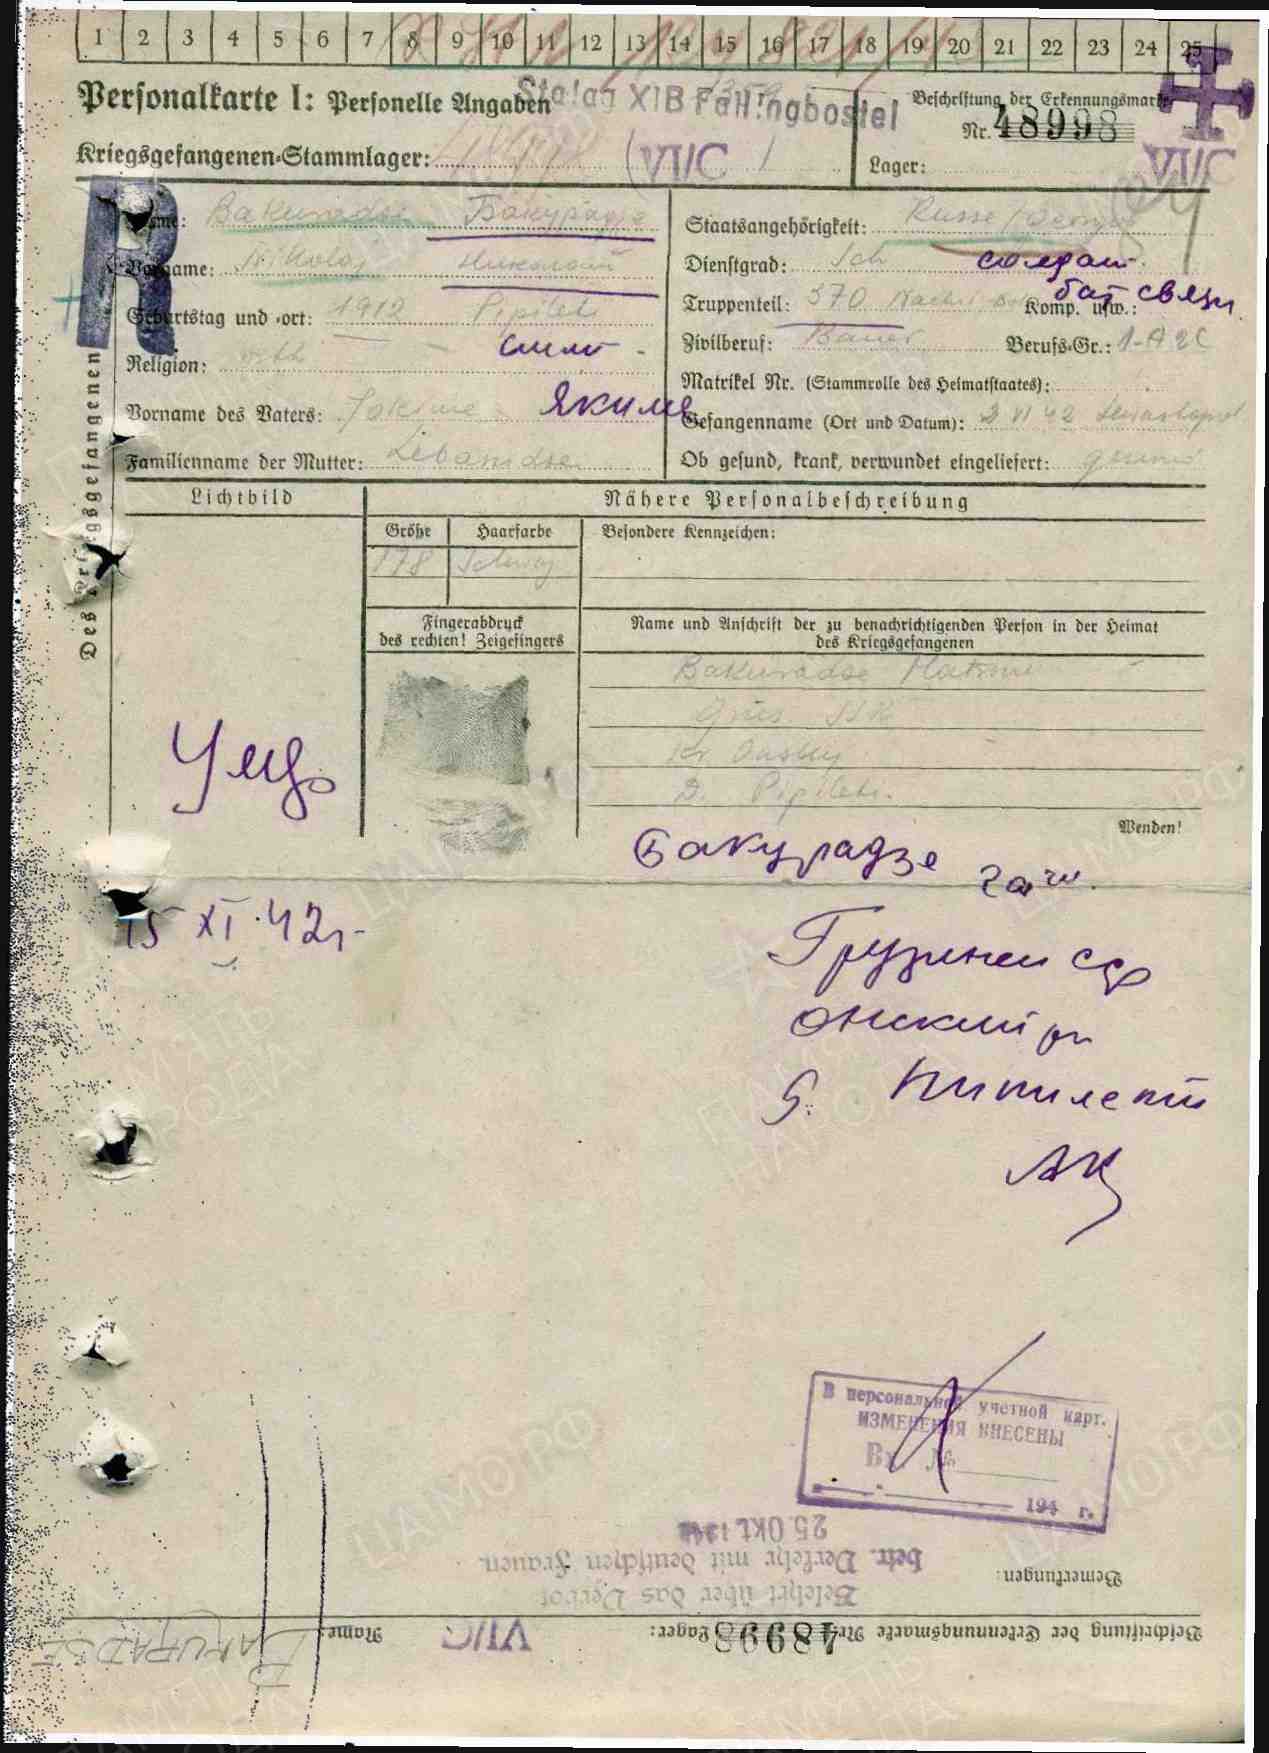 1 2 3 4 5 6 7 8 9 10 11 12 13 14 15 16 17 18 19 20 21 22 23 24 25
Personalkarte I: Personelle Angaben
Stalag XIB Fallingbostel
Beschriftung der Erkennungsmarke
Nr. 48998
Kriegsgefangenen-Stammlager: VI/C
Lager: VI/C
R
Des Kriegsgefangenen
Name: Bakuradse Бакурадзе
Staatsangehörigkeit: Russe
Vorname: Nikolaj Николай
Dienstgrad: Sch солдат
Geburtstag und -ort: 1912 Pipileti
Truppenteil: 370 Komp. usw.: бат связи
Religion: orth
Zivilberuf: Bauer Berufs-Gr.:
Matrikel Nr. (Stammrolle des Heimatstaates):
Vorname des Vaters: Jakime Якиме
Gefangenname (Ort und Datum): 2 VI 42
Familienname der Mutter: Lebanidse
Ob gesund, krank, verwundet eingeliefert: gesund
Lichtbild
Nähere Personalbeschreibung
Größe Haarfarbe Besondere Kennzeichen:
178 Schwarz
Fingerabdruck
des rechten! Zeigefingers
Name und Anschrift der zu benachrichtigenden Person in der Heimat
des Kriegsgefangenen
Bakuradse
D. Pipileti.
Wenden!
Бакурадзе
15 XI.42г.
Грузинси ср
Онский рн
Пипилети
В персональной учетной карт.
ИЗМЕНЕНИЯ ВНЕСЕНЫ
Вх №
194 г.
Bemerkungen:
Belehrt über das Verbot
betr. Verkehr mit deutschen Frauen
25. Okt.
Beschriftung der Erkennungsmarke Nr. 48998 Lager: VI/C Name: BAKURADSE